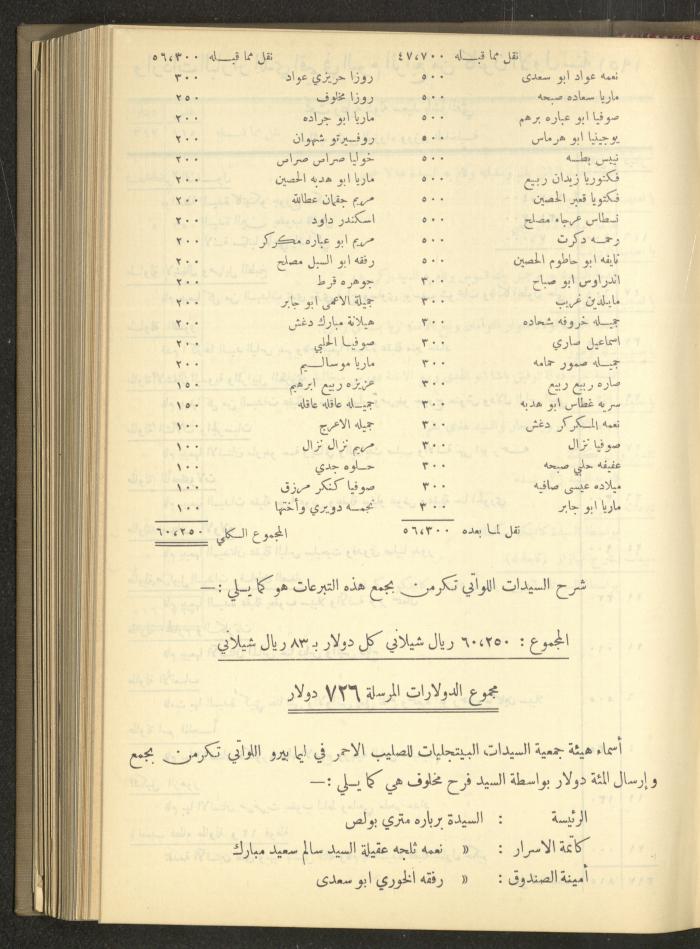 نقل مما قبله ٤٧،٧٠٠
نعمه عواد ابو سعدى ٥٠٠
ماريا سعاده صبحه ٥٠٠
صوفيا ابو عباره برهم ٥٠٠
يوجينيا ابو هرماس ٥٠٠
نييس بطه ٥٠٠
فكتوريا زيدان ربيع ٥٠٠
فكتويا قعبر الحصين ٥٠٠
نسطاس عرجاء مصلح ٥٠٠
رحمه دكرت ٥٠٠
نايفه ابو حاطوم الحصين ٥٠٠
اندراوس ابو صباح ٣٠٠
مابلدين غريب ٣٠٠
جميله خروفه شحاده ٣٠٠
اسماعيل صاري ٣٠٠
جميله صمور حمامه ٣٠٠
صاره ربيع ربيع ٣٠٠
سريه غطاس ابو هدبه ٣٠٠
نعمه المكركر دغش ٣٠٠
صوفيا نزال ٣٠٠
عفيفه حلبي صبحه ٣٠٠
ميلاده عيسى صافيه ٣٠٠
ماريا ابو جابر ٣٠٠
نقل لما بعده ٥٦،٣٠٠
نقل مما قبله ٥٦،٣٠٠
روزا حريزي عواد ٣٠٠
روزا مخلوف ٢٥٠
ماريا ابو جراده ٢٠٠
روفسيرتو شهوان ٢٠٠
خوليا صراس صراس ٢٠٠
ماريا ابو هدبه الحصين ٢٠٠
مريم جقمان عطالله ٢٠٠
اسكندر داود ٢٠٠
مريم ابو عباره مكركر ٢٠٠
رفقه ابو السبل مصلح ٢٠٠
جوهره قرط ٢٠٠
جميلة الاعمى ابو جابر ٢٠٠
هيلانة مبارك دغش ٢٠٠
صوفيا الحلبي ٢٠٠
ماريا موسالسيم ٢٠٠
عزيزه ربيع ابرهيم ١٥٠
جميله عاقله عاقله ١٥٠
جميله الاعرج ١٠٠
مريم نزال نزال ١٠٠
حلوه جدي ١٠٠
صوفيا كنكر مرزق ١٠٠
نجمه دويري وأختها ١٠٠
المجموع الكلي ٦٠،٢٥٠
شرح السيدات اللواتي تكرمن بجمع هذه التبرعات هو كما يلي :—
المجموع : ٦٠،٢٥٠ ريال شيلاني كل دولار بـ ٨٣ ريال شيلاني
مجموع الدولارات المرسلة ٧٢٦ دولار
أسماء هيئة جمعية السيدات البيتجليات للصليب الاحمر في ليما بيرو اللواتي تكرمن بجمع
وإرسال المئة دولار بواسطة السيد فرح مخلوف هي كما يلي :—
الرئيسة : السيدة برباره متري بولص
كاتمة الاسرار : » نعمه ثلجه عقيلة السيد سالم سعيد مبارك
أمينة الصندوق : » رفقه الخوري ابو سعدى